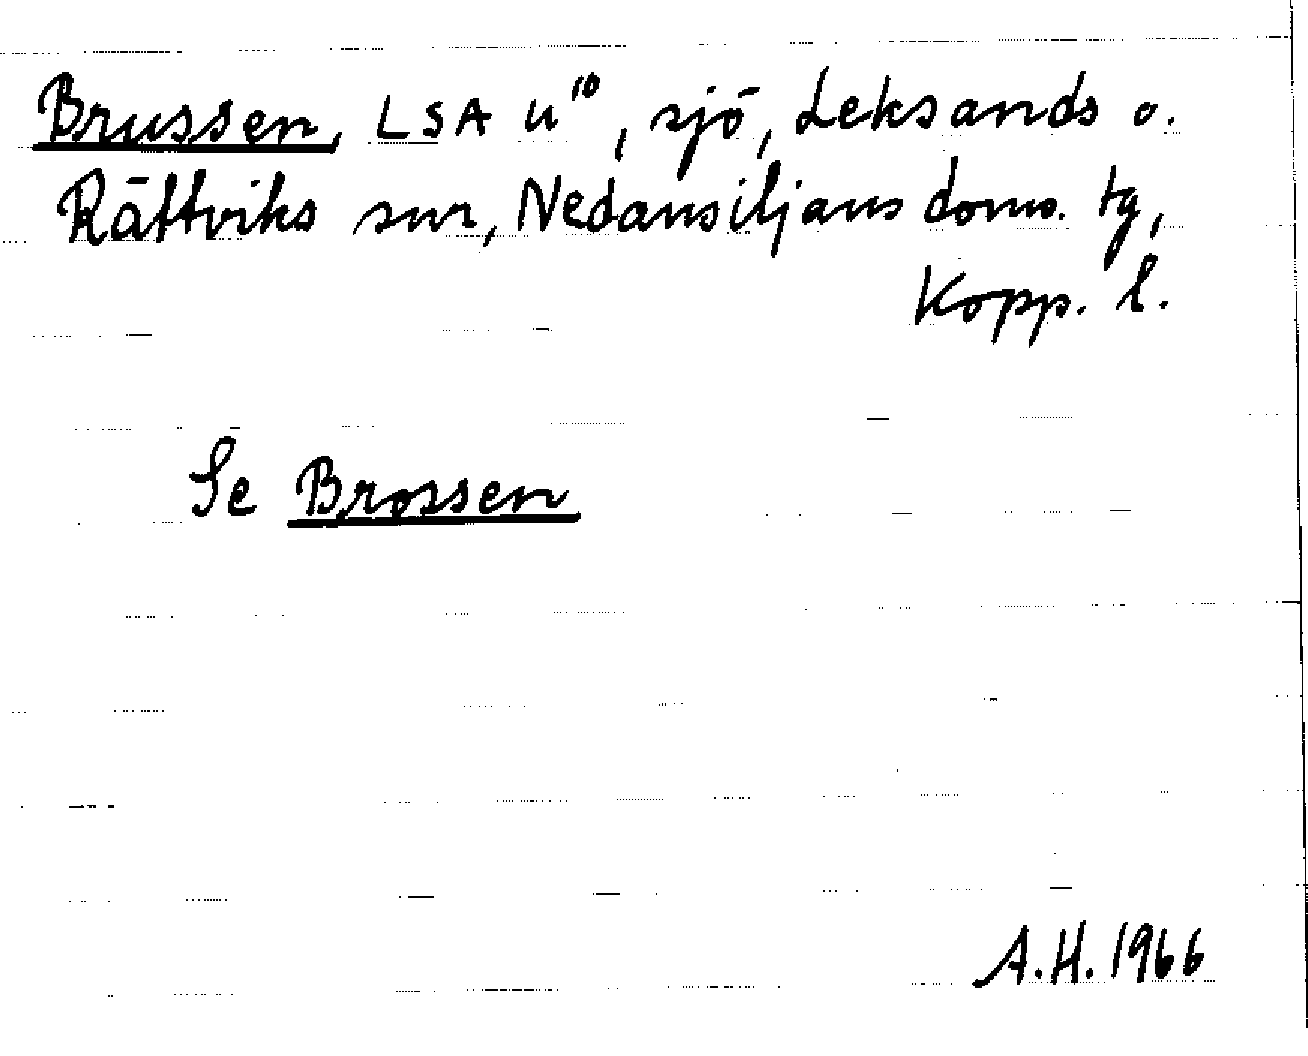 Brussen, LSA u¹⁰, sjö, Leksands o.
Rättviks snr, Nedansiljans doms. tg,
Kopp. l.
Se Brossen
A.H. 1966